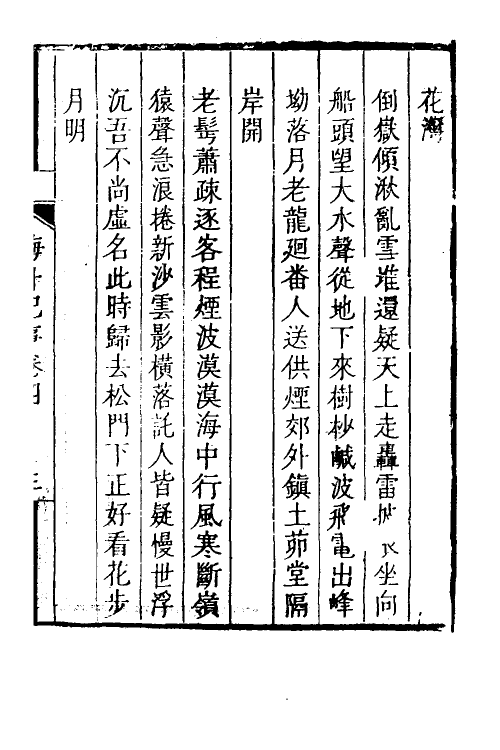 花灣
倒嶽傾湫亂雪堆還疑天上走轟雷披衣坐向
船頭望大水聲從地下來樹杪鹹波飛黿出峰
坳落月老龍廻番人送供煙郊外鎮土茆堂隔
岸開
老髩蕭疎逐客程煙波漠漠海中行風寒斷嶺
猿聲急浪捲新沙雲影橫落託人皆疑慢世浮
沉吾不尚虛名此時歸去松門下正好看花步
月明
海外紀事卷四